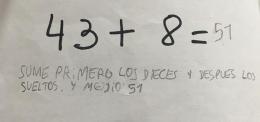 43 + 8 = 51
SUME PRIMERO LOS DIECES Y DESPUES LOS
SUELTOS, Y ME DIO 51